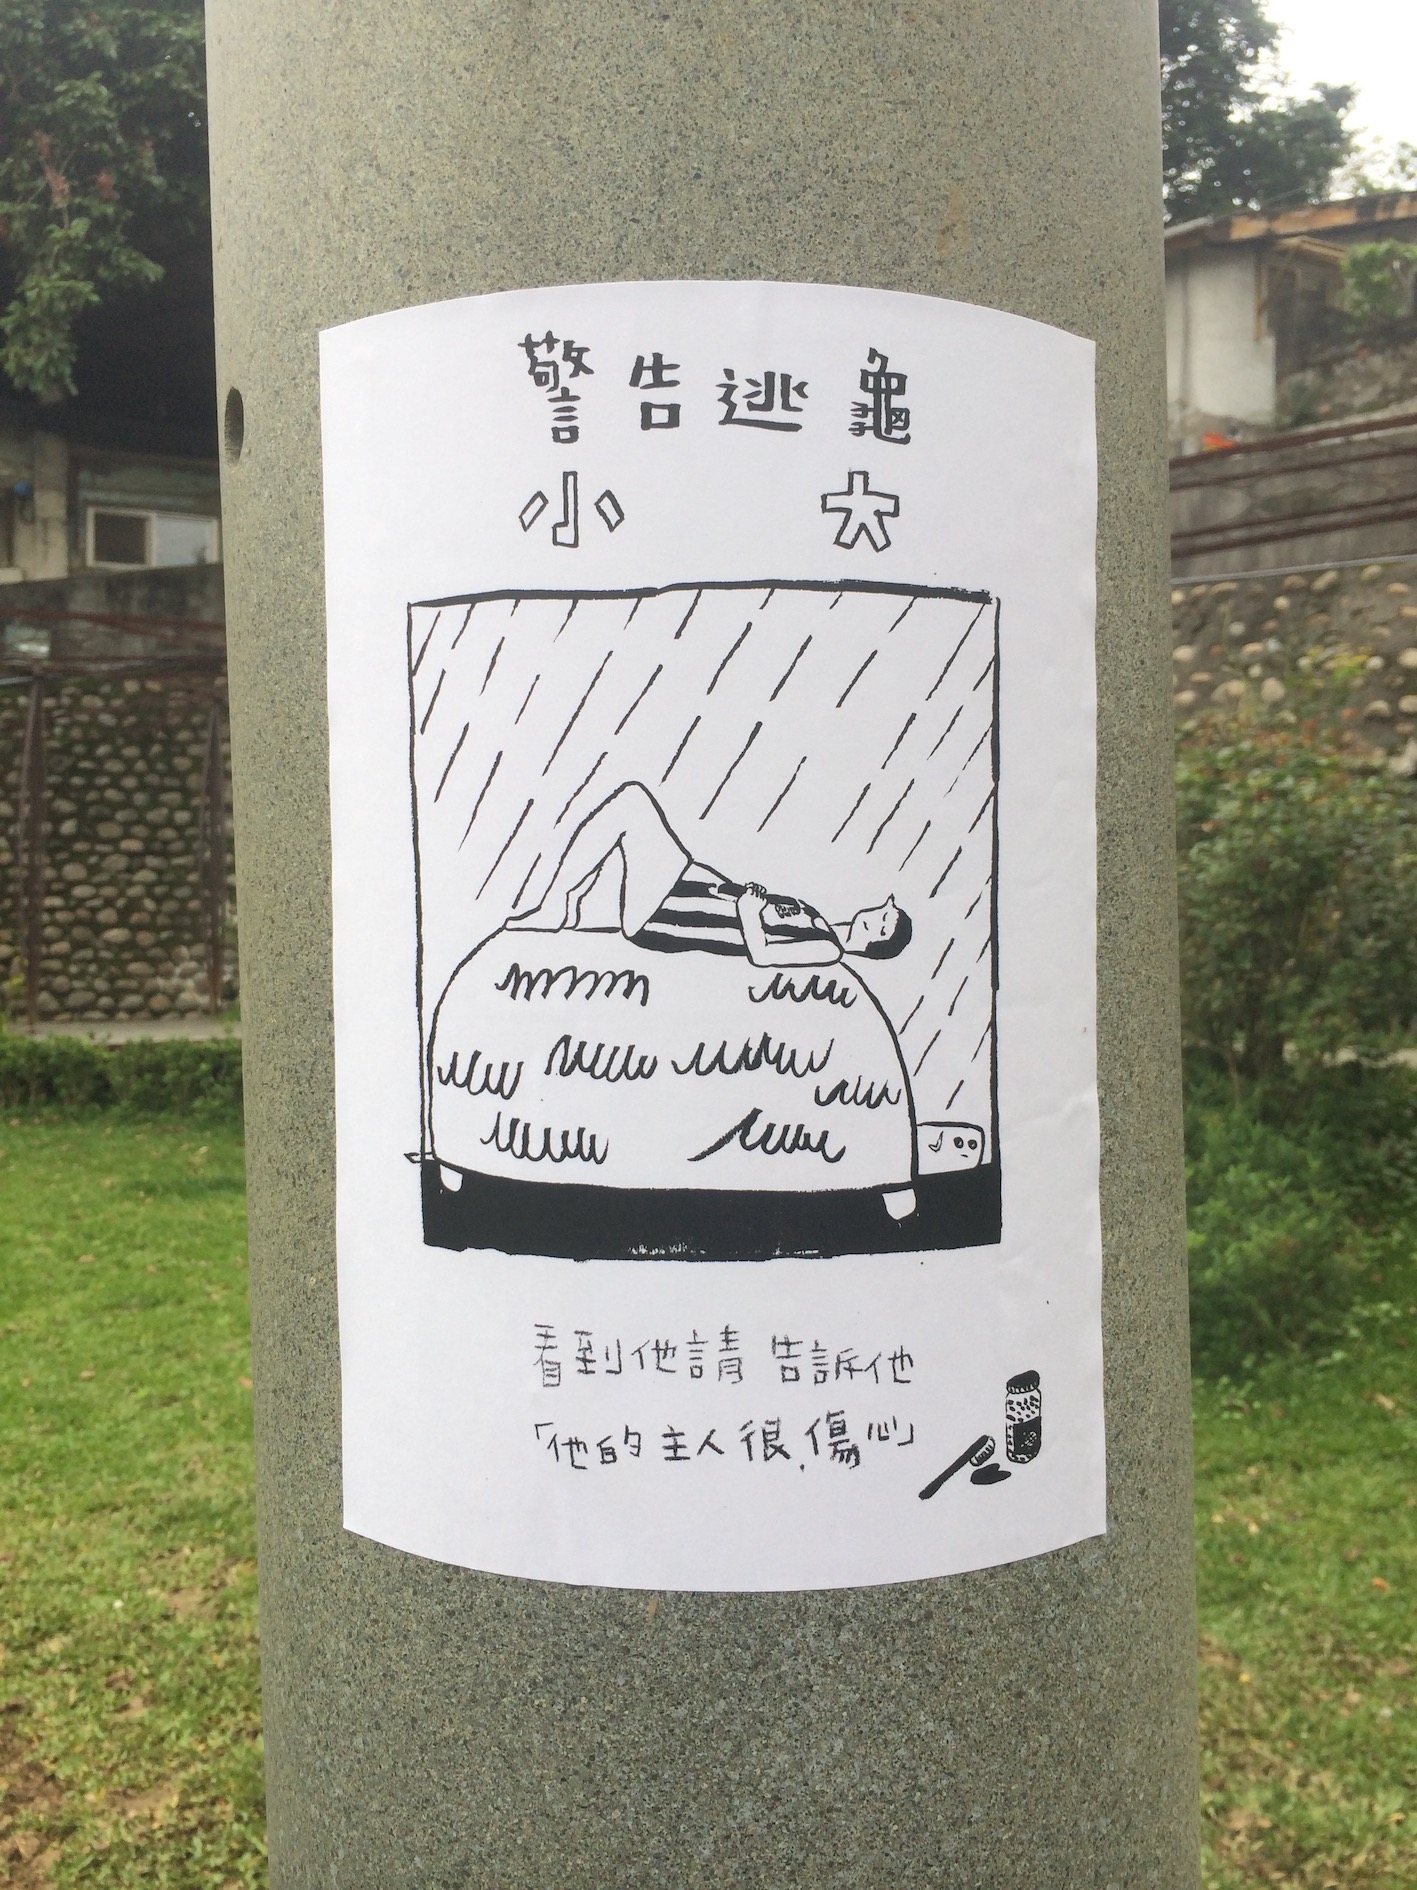 警告逃龜
小大
看到他請告訴他
「他的主人很傷心」